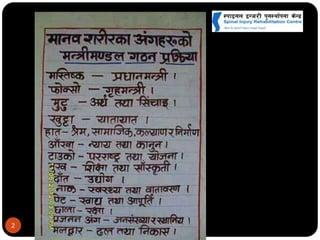 स्पाइनल इन्जरी पुनर्स्थापना केन्द्र
Spinal Injury Rehabilitation Centre
मानव शरीरका अंगहरुको
मन्त्रीमण्डल गठन प्रक्रिया
मस्तिष्क — प्रधानमन्त्री ।
फोक्सो — गृहमन्त्री ।
मुटु — अर्थ तथा सिंचाइ ।
खुट्टा — यातायात ।
हात - श्रम, सामाजिक, कल्याण र निर्माण
आँखा - न्याय तथा कानुन ।
टाउको - परराष्ट्र तथा योजना ।
मुख - शिक्षा तथा साँस्कृती ।
दाँत - उद्योग ।
नाक - स्वास्थ्य तथा वातावरण ।
पेट - खाद्य तथा आपूर्ति ।
छाला - रक्षा ।
प्रजनन अंग - जनसंख्या र स्थानिय ।
मलद्वार - ढल तथा निकास ।
2